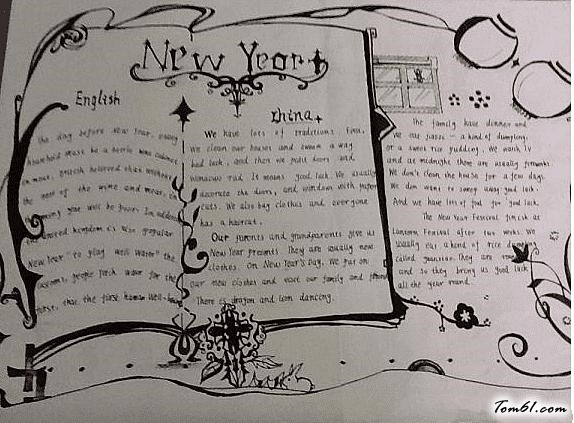 New Year
English
the day before New Year, every
household must be a bottle wine cabinet
in meat. British believed that without
the rest of the wine and meat, the
coming year will be poor. In addition
the united kingdom is also popular
New Year "to play well water" the
customs, people fetch water for the
first, that the first human well-
China
We have lots of traditions. First,
we clean our houses and sweep a way
bad luck. and then we paint doors and
windows red. It means good luck. We usually
decorate the doors, and windows with paper
cuts. We also buy clothes and everyone
has a haircut.
Our parents and grandparents give us
New Year presents They are usually new
clothes. On New Year's Day. We put on
our new clothes and visit our family and friend
There is dragon and lion dancing.
The family have dinner and
we eat jiaozi - a kind of dumpling,
or a sweet rice pudding. We watch TV
and at midnight there are usually fireworks
We don't clean the house for a few days.
We don want to sweep away good luck.
And we have lots of food for good luck.
The New Year Festival finish at
Lantern Festival after two weeks. We
usually eat a kind of rice dumpling
called yuanxiao. They are
and so they bring us good luck
all the year round.
Tom61.com